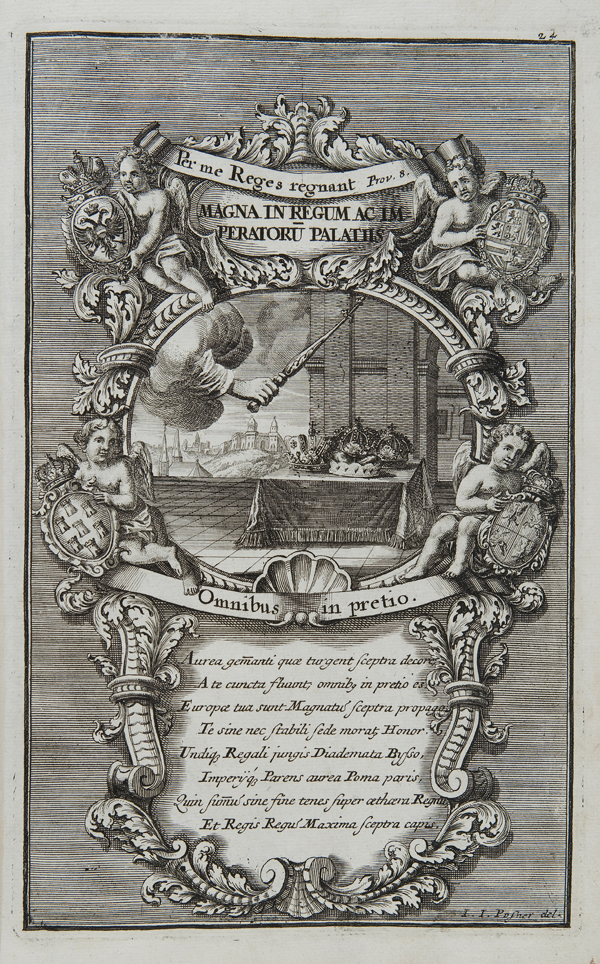 24
Per me Reges regnant Prov. 8.
MAGNA IN REGUM AC IM-
PERATORŪ PALATIIS
Omnibus in pretio.
Aurea gem̄anti quæ turgent sceptra decore,
A te cuncta fluunt; omnibꝫ in pretio es.
Europæ tua sunt Magnatū sceptra propago
Te sine nec stabili sede moratꝫ Honor.
Undiqꝫ Regali jungis Diademata Bysso,
Imperijqꝫ Parens aurea Poma paris;
Quin sum̄ū sine fine tenes super æthæra Regnū
Et Regis Regū Maxima sceptra capis.
I. I. Posner del.